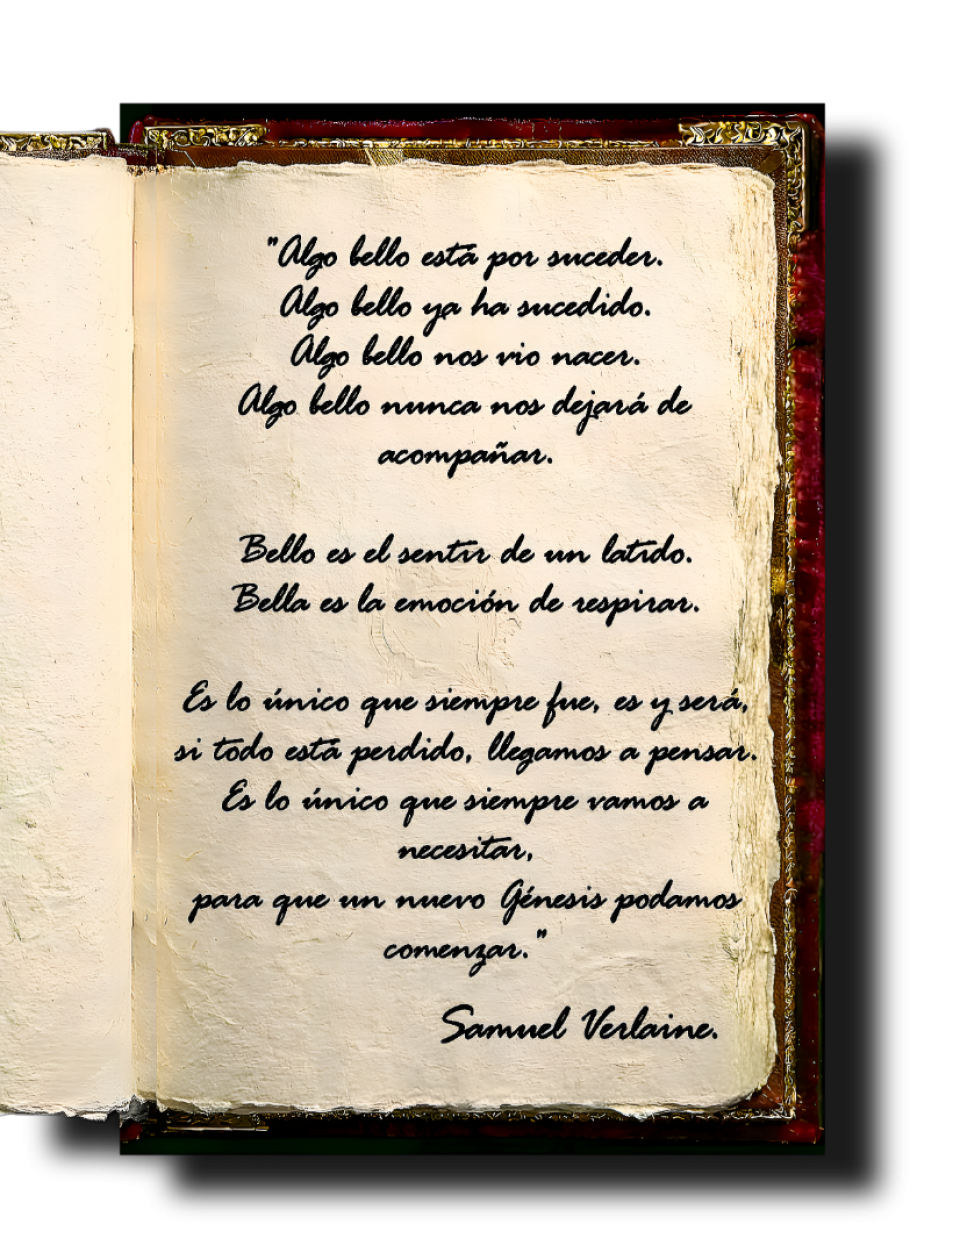 "Algo bello está por suceder.
Algo bello ya ha sucedido.
Algo bello nos vio nacer.
Algo bello nunca nos dejará de
acompañar.
Bello es el sentir de un latido.
Bella es la emoción de respirar.
Es lo único que siempre fue, es y será,
si todo está perdido, llegamos a pensar.
Es lo único que siempre vamos a
necesitar,
para que un nuevo Génesis podamos
comenzar."
Samuel Verlaine.